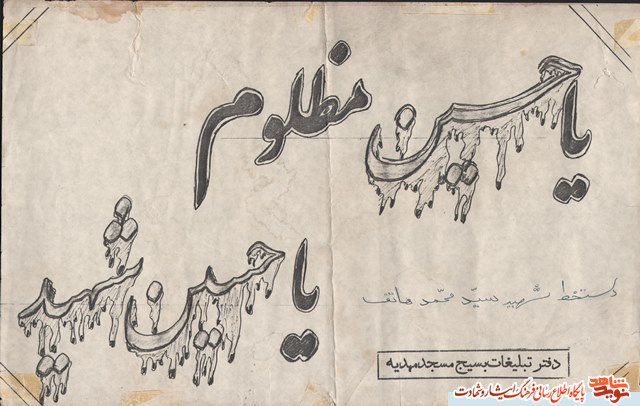 یا حسین مظلوم
یا حسین شهید
دستخط شهید سید محمد هاتف
دفتر تبلیغات بسیج مسجد مهدیه
نوید شاهد
پایگاه اطلاع رسانی فرهنگ ایثار و شهادت